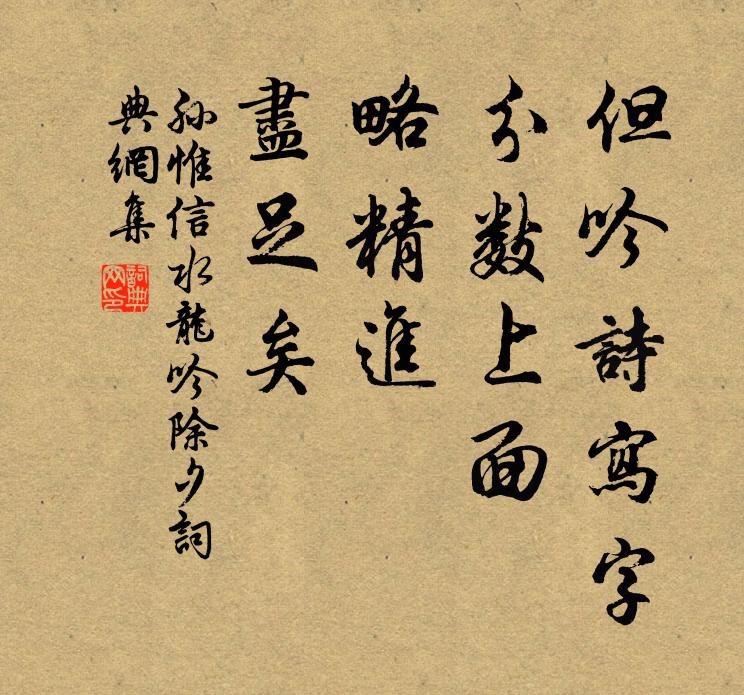 但吟詩寫字
分數上面
略精進
盡足矣
孫惟信水龍吟除夕詞
典網集
詞典網印